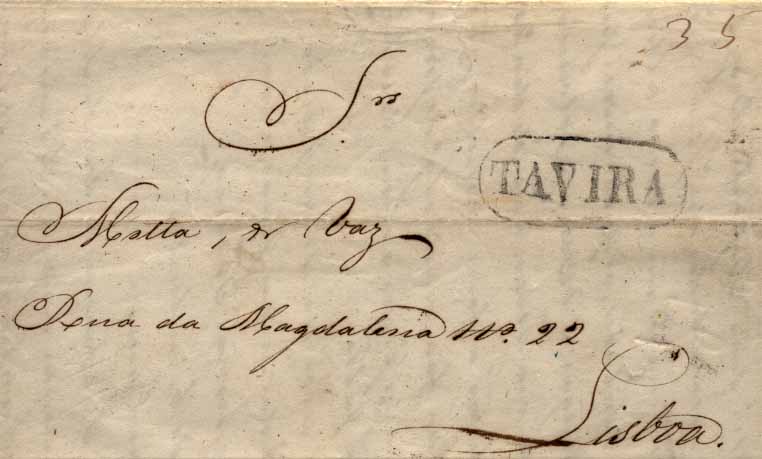 35
Snrs
TAVIRA
Motta, & Vaz
Rua da Magdalena No. 22
Lisboa.